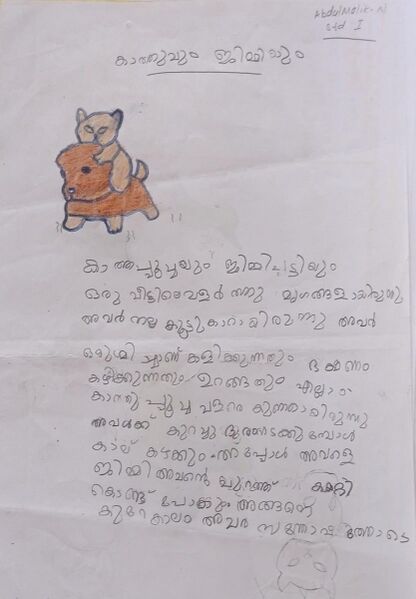 AbdulMalik.N
Std I
കാത്തുവും ജിമ്മിയും
കാത്തുപ്പൂച്ചയും ജിമ്മിപട്ടിയും
ഒരു വീട്ടിലെവളർത്തു മൃഗങ്ങളായിരുന്നു
അവർ നല്ല കൂട്ടുകാറായിരുന്നു അവർ
ഒരുമിച്ചാണ് കളിക്കുന്നതും ഭക്ഷണം
കഴിക്കുന്നതും ഉറങ്ങതും എല്ലാം
കാത്തു പ്പൂച്ച വളരെ കുഞ്ഞായിരുന്നു
അവൾക്ക് കുറച്ചു ദൂരംനടക്കുമ്പോൾ
കാല് കഴക്കും. അപ്പോൾ അവളെ
ജിമ്മി അവന്റെ പുറത്ത് കയറ്റി
കൊണ്ട് പോക്കും അങ്ങനെ
കുറേ കാലം അവര സന്തോഷത്തോടെ